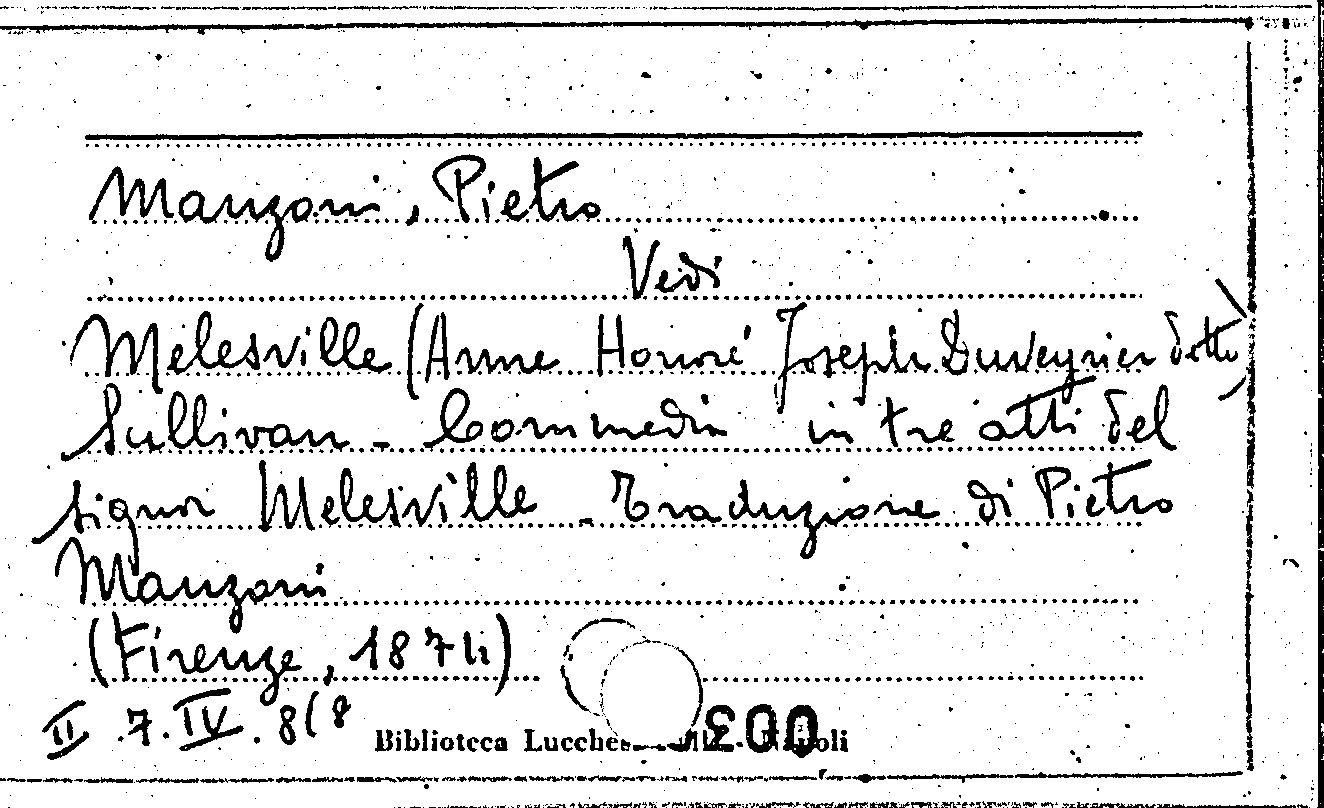 Manzoni, Pietro
Vedi
Melesville (Anne Honoré Joseph Duveyrier detto)
Sullivan - Commedia in tre atti del
signor Melesville - Traduzione di Pietro
Manzoni
(Firenze, 1874)
II .7.IV.8(8
Biblioteca